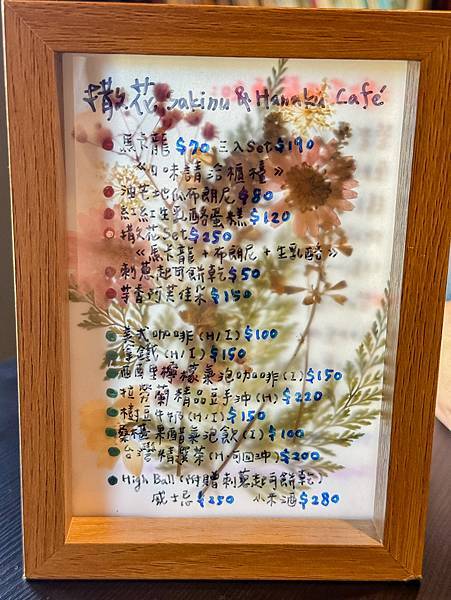 撒花 Sakinu & Hanaku Café
馬卡龍 $70 三入Set $190
《口味請洽櫃檯》
油芒地瓜布朗尼 $80
紅紅生乳酪蛋糕 $120
撒花Set $250
《馬卡龍+布朗尼+生乳酪》
刺蔥起司餅乾 $50
芋香阿芙佳朵 $150
美式咖啡(H/I) $100
拿鐵(H/I) $150
西西里檸檬氣泡咖啡(I) $150
拉勞蘭精品豆手沖(H) $220
樹豆牛奶(H/I) $150
桑椹果醋氣泡飲(I) $100
台灣精選茶(H·可回沖) $200
High Ball (附贈刺蔥起司餅乾)
威士忌 $250 小米酒 $280